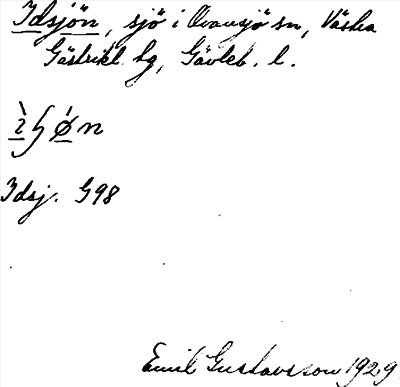 Idsjön, sjö i Ovansjö sn, Västra
Gästrikl. hg, Gävleb. l.
Idsj. G98
Emil Gustavsson 1929